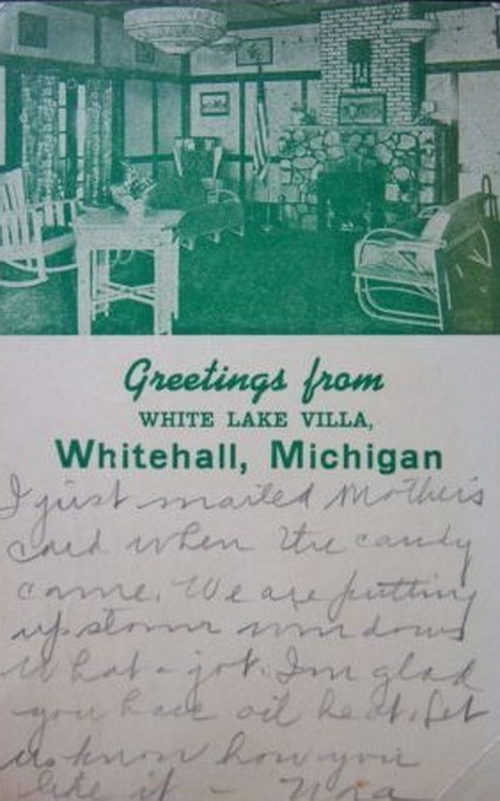 Greetings from
WHITE LAKE VILLA,
Whitehall, Michigan
I just mailed Mother's
card when the candy
came. We are putting
up storm windows
What a job. I'm glad
you have oil heat. Let
us know how you
like it -